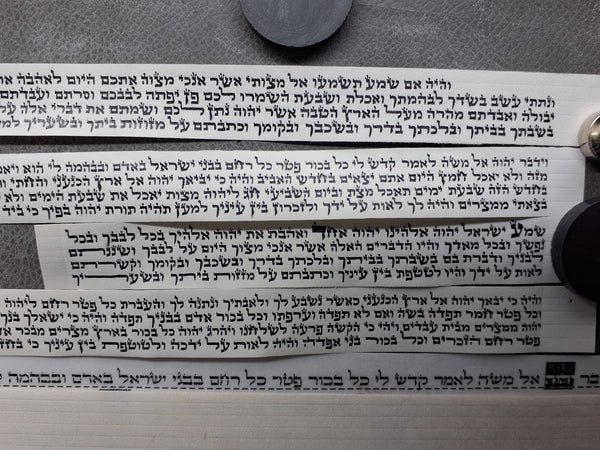 והיה אם שמע תשמעו אל מצותי אשר אנכי מצוה אתכם היום לאהבה את
ונתתי עשב בשדך לבהמתך ואכלת ושבעת השמרו לכם פן יפתה לבבכם וסרתם ועבדתם
יבולה ואבדתם מהרה מעל הארץ הטבה אשר יהוה נתן לכם ושמתם את דברי אלה על
בשבתך בביתך ובלכתך בדרך ובשכבך ובקומך וכתבתם על מזוזות ביתך ובשעריך
וידבר יהוה אל משה לאמר קדש לי כל בכור פטר כל רחם בבני ישראל באדם ובבהמה לי הוא
מזה ולא יאכל חמץ היום אתם יצאים בחדש האביב והיה כי יביאך יהוה אל ארץ הכנעני והחתי
בחדש הזה שבעת ימים תאכל מצת וביום השביעי חג ליהוה מצות יאכל את שבעת הימים ולא
בצאתי ממצרים והיה לך לאות על ידך ולזכרון בין עיניך למען תהיה תורת יהוה בפיך כי ביד
שמע ישראל יהוה אלהינו יהוה אחד ואהבת את יהוה אלהיך בכל לבבך ובכל
נפשך ובכל מאדך והיו הדברים האלה אשר אנכי מצוך היום על לבבך ושננתם
לבניך ודברת בם בשבתך בביתך ובלכתך בדרך ובשכבך ובקומך וקשרתם
לאות על ידך והיו לטטפת בין עיניך וכתבתם על מזזות ביתך ובשעריך
והיה כי יבאך יהוה אל ארץ הכנעני כאשר נשבע לך ולאבתיך ונתנה לך והעברת כל פטר רחם ליהוה
וכל פטר חמר תפדה בשה ואם לא תפדה וערפתו וכל בכור אדם בבניך תפדה והיה כי ישאלך בנך
יהוה ממצרים מבית עבדים ויהי כי הקשה פרעה לשלחנו ויהרג יהוה כל בכור בארץ מצרים מבכר אדם
פטר רחם הזכרים וכל בכור בני אפדה והיה לאות על ידכה ולטוטפת בין עיניך כי
בר אל משה לאמר קדש לי כל בכור פטר כל רחם בבני ישראל באדם ובבהמה